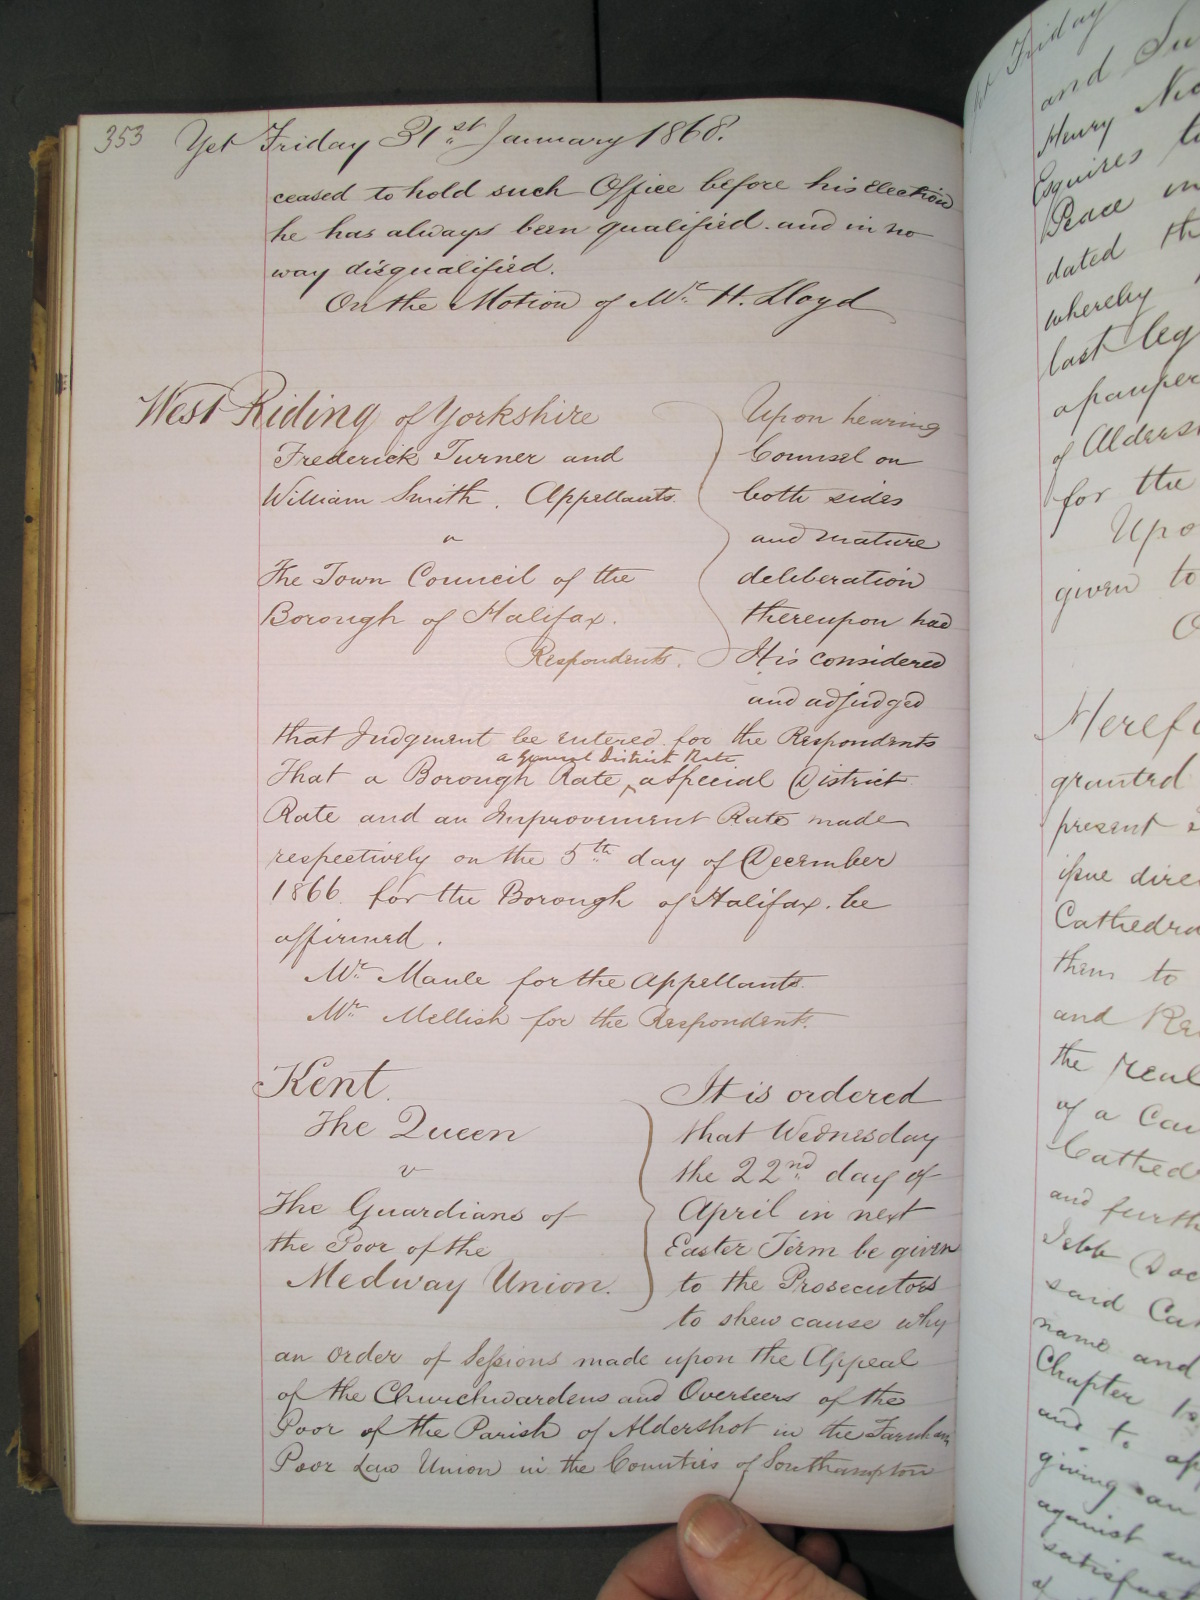 353 Yet Friday 31st January 1868.
ceased to hold such Office before his election
he has always been qualified and in no
way disqualified.
On the Motion of Mr. H. Lloyd
West Riding of Yorkshire
Frederick Turner and
William Smith. Appellants
v
The Town Council of the
Borough of Halifax.
Respondents.
Upon hearing
Counsel on
both sides
and mature
deliberation
thereupon had
It is considered
and adjudged
that Judgment be entered for the Respondents
a General District Rate
That a Borough Rate, a Special District
Rate and an Improvement Rate made
respectively on the 5th day of December
1866 for the Borough of Halifax. be
affirmed.
Mr. Maule for the Appellants.
Mr. Mellish for the Respondents.
Kent.
The Queen
v
The Guardians of
the Poor of the
Medway Union.
It is ordered
that Wednesday
the 22nd day of
April in next
Easter Term be given
to the Prosecutors
to shew cause why
an order of Sessions made upon the Appeal
of the Churchwardens and Overseers of the
Poor of the Parish of Aldershot in the Farnham
Poor Law Union in the Counties of Southampton
Friday
and
Henry
Esquires
Peace in
dated
whereby
last leg
a pauper
of Aldersh
for the
Upo
given to
Heref
granted
present
issue direc
Cathedra
them to
and Re
the Real
of a Can
Cathed
and furth
Jebb Doc
said Ca
name and
Chapter
and to ap
giving an
against an
satisfact